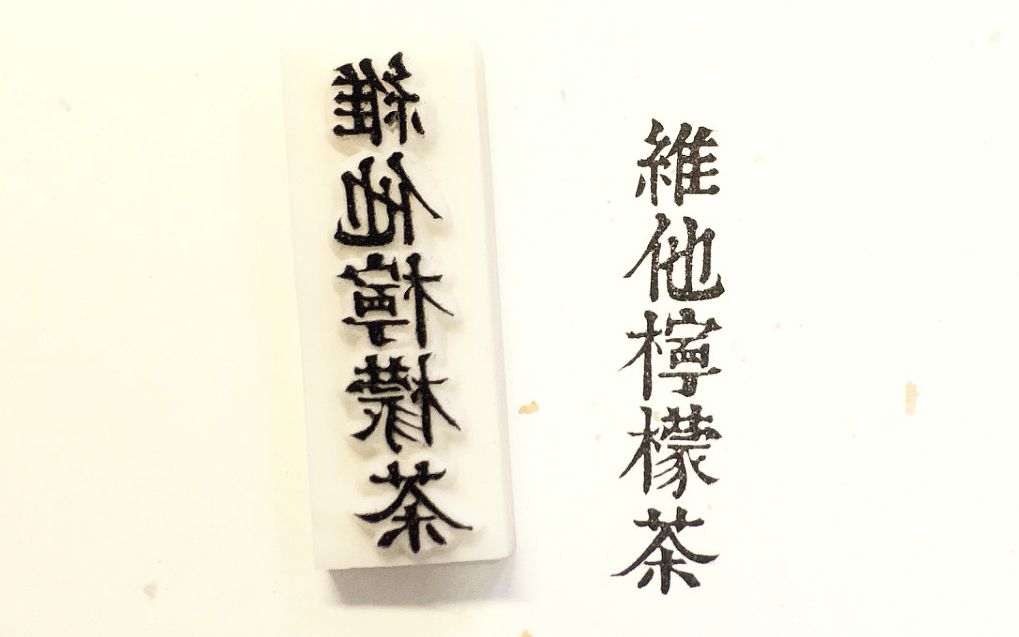 維他檸檬茶
維他檸檬茶